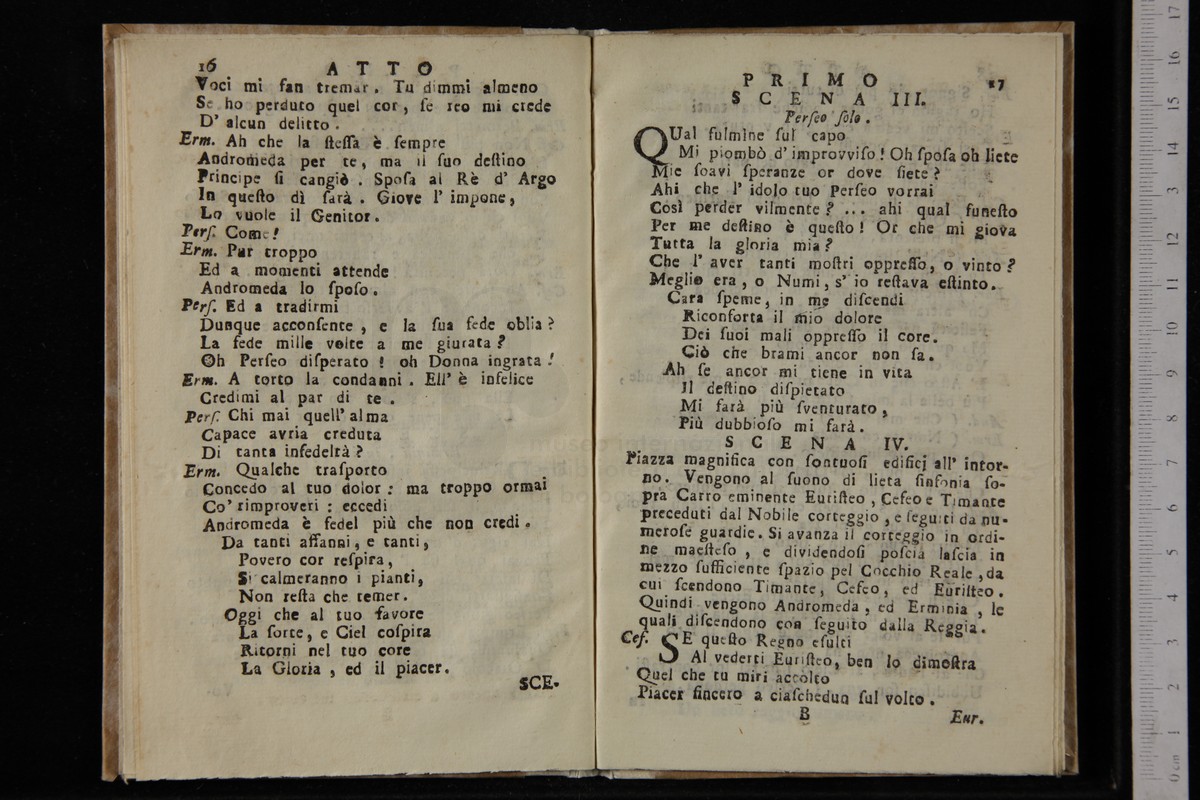 16 ATTO
Voci mi fan tremar. Tu dimmi almeno
Se ho perduto quel cor, ſe reo mi crede
D' alcun delitto.
Erm. Ah che la ſteſſa è ſempre
Andromeda per te, ma il ſuo deſtino
Principe ſi cangiò. Spoſa al Rè d' Argo
In queſto dì ſarà. Giove l' impone,
Lo vuole il Genitor.
Perſ. Come!
Erm. Pur troppo
Ed a momenti attende
Andromeda lo ſpoſo.
Perſ. Ed a tradirmi
Dunque acconſente, e la ſua fede oblia?
La fede mille volte a me giurata?
Oh Perſeo diſperato! oh Donna ingrata!
Erm. A torto la condanni. Ell' è infelice
Credimi al par di te.
Perſ. Chi mai quell' alma
Capace avria creduta
Di tanta infedeltà?
Erm. Qualche traſporto
Concedo al tuo dolor: ma troppo ormai
Co' rimproveri: eccedi
Andromeda è fedel più che non credi.
Da tanti affanni, e tanti,
Povero cor reſpira,
Si calmeranno i pianti,
Non reſta che temer.
Oggi che al tuo favore
La ſorte, e Ciel coſpira
Ritorni nel tuo core
La Gloria, ed il piacer.
SCE-
PRIMO 17
SCENA III.
Perſeo ſolo.
QUal fulmine ſul capo
Mi piombò d' improvviſo! Oh ſpoſa oh liete
Mie ſoavi ſperanze or dove ſiete?
Ahi che l' idolo tuo Perſeo vorrai
Così perder vilmente? ... ahi qual funeſto
Per me deſtino è queſto! Or che mi giova
Tutta la gloria mia?
Che l' aver tanti moſtri oppreſſo, o vinto?
Meglio era, o Numi, s' io reſtava eſtinto.
Cara ſpeme, in me diſcendi
Riconforta il mio dolore
Dei ſuoi mali oppreſſo il core.
Ciò che brami ancor non ſa.
Ah ſe ancor mi tiene in vita
Il deſtino diſpietato
Mi farà più ſventurato,
Più dubbioſo mi farà.
SCENA IV.
Piazza magnifica con ſontuoſi edificj all' intor-
no. Vengono al ſuono di lieta ſinfonia ſo-
pra Carro eminente Euriſteo, Cefeo e Timante
preceduti dal Nobile corteggio, e ſeguiti da nu-
meroſe guardie. Si avanza il corteggio in ordi-
ne maeſtoſo, e dividendoſi poſcia laſcia in
mezzo ſufficiente ſpazio pel Cocchio Reale, da
cui ſcendono Timante, Cefeo, ed Euriſteo.
Quindi vengono Andromeda, ed Erminia, le
quali diſcendono con ſeguito dalla Reggia.
Cef. SE queſto Regno eſulti
Al vederti Euriſteo, ben lo dimoſtra
Quel che tu miri accolto
Piacer ſincero a ciaſchedun ſul volto.
B Eur.
0 cm 1 2 3 4 5 6 7 8 9 10 11 12 13 14 15 16 17